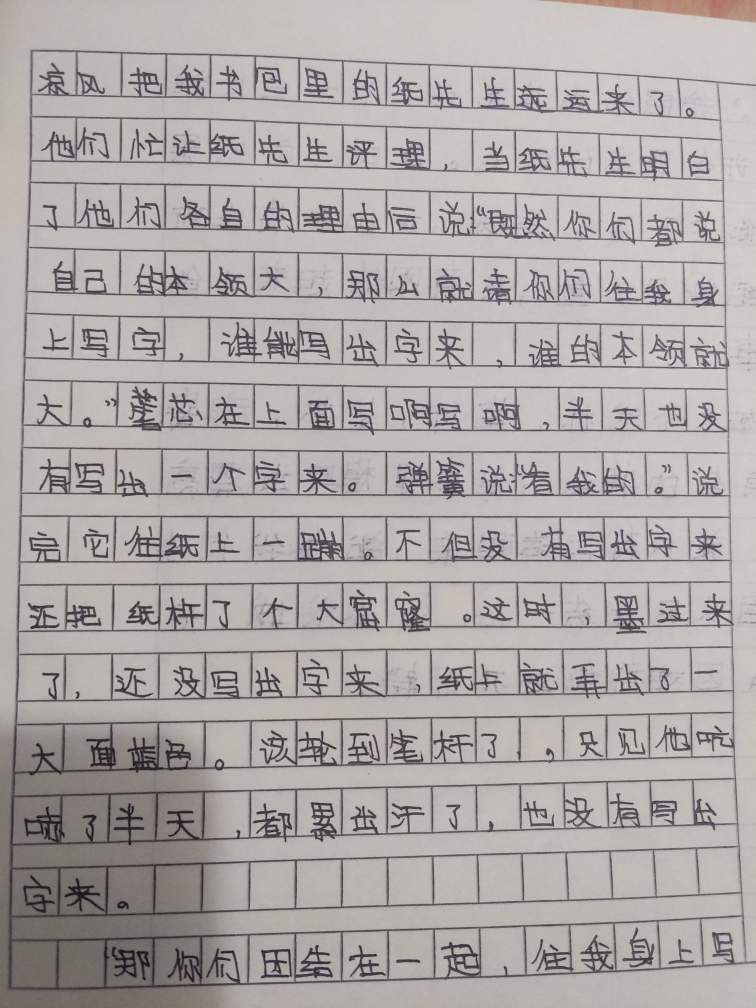 凉风把我书包里的纸先生远运来了。
他们忙让纸先生评理，当纸先生明白
了他们各自的理由后说“既然你们都说
自己的本领大，那么就请你们往我身
上写字，谁能写出字来，谁的本领就
大。”笔芯在上面写啊写啊，半天也没
有写出一个字来。弹簧说“看我的。”说
完它往纸上一蹦。不但没有写出字来
还把纸杆了个大窟窿。这时，墨过来
了，还没写出字来，纸上就弄出了一
大面蓝色。该轮到笔杆了，只见他吭
哧了半天，都累出汗了，也没有写出
字来。
“那你们团结在一起，往我身上写